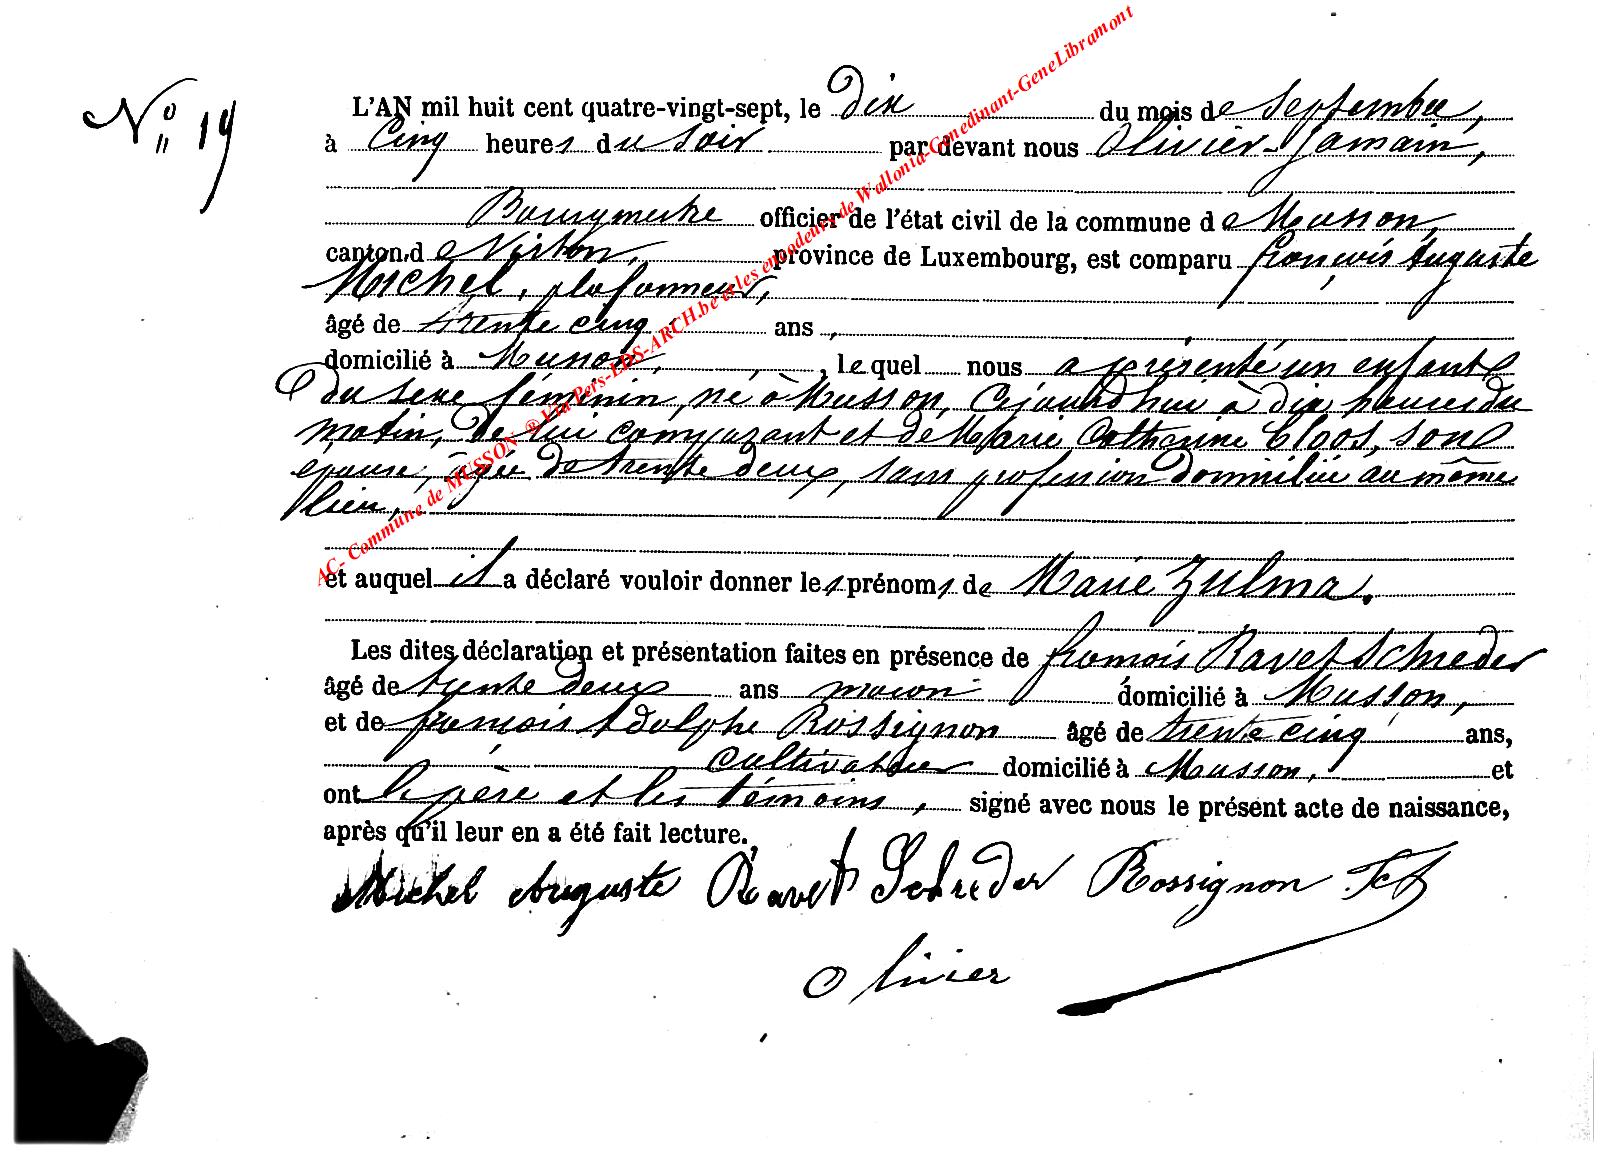 N° 19
L'AN mil huit cent quatre-vingt-sept, le dix du mois de Septembre,
à cinq heures du soir par devant nous Olivier Jamain,
Bourgmestre officier de l'état civil de la commune de Musson,
canton de Virton, province de Luxembourg, est comparu françois Auguste
Michel, plafonneur,
âgé de trente cinq ans,
domicilié à Musson, , lequel nous a présenté un enfant
du sexe féminin, né à Musson, cejourd'hui à dix heures du
matin, de lui comparant et de Marie Catherine Cloos, son
épouse, âgée de trente deux, sans profession domiciliée au même
lieu,
et auquel il a déclaré vouloir donner les prénoms de Marie Zulma.
Les dites déclaration et présentation faites en présence de françois Ravet Schreder
âgé de trente deux ans maçon domicilié à Musson,
et de françois Adolphe Rossignon âgé de trente cinq ans,
cultivateur domicilié à Musson, et
ont le père et les témoins, signé avec nous le présent acte de naissance,
après qu'il leur en a été fait lecture.
Michel Auguste Ravet Schreder Rossignon
Olivier
AC- Commune de MUSSON ® Via Pers-LDS-ARCH.be et les encodeurs de Wallonia-Genedinant-GeneLibramont